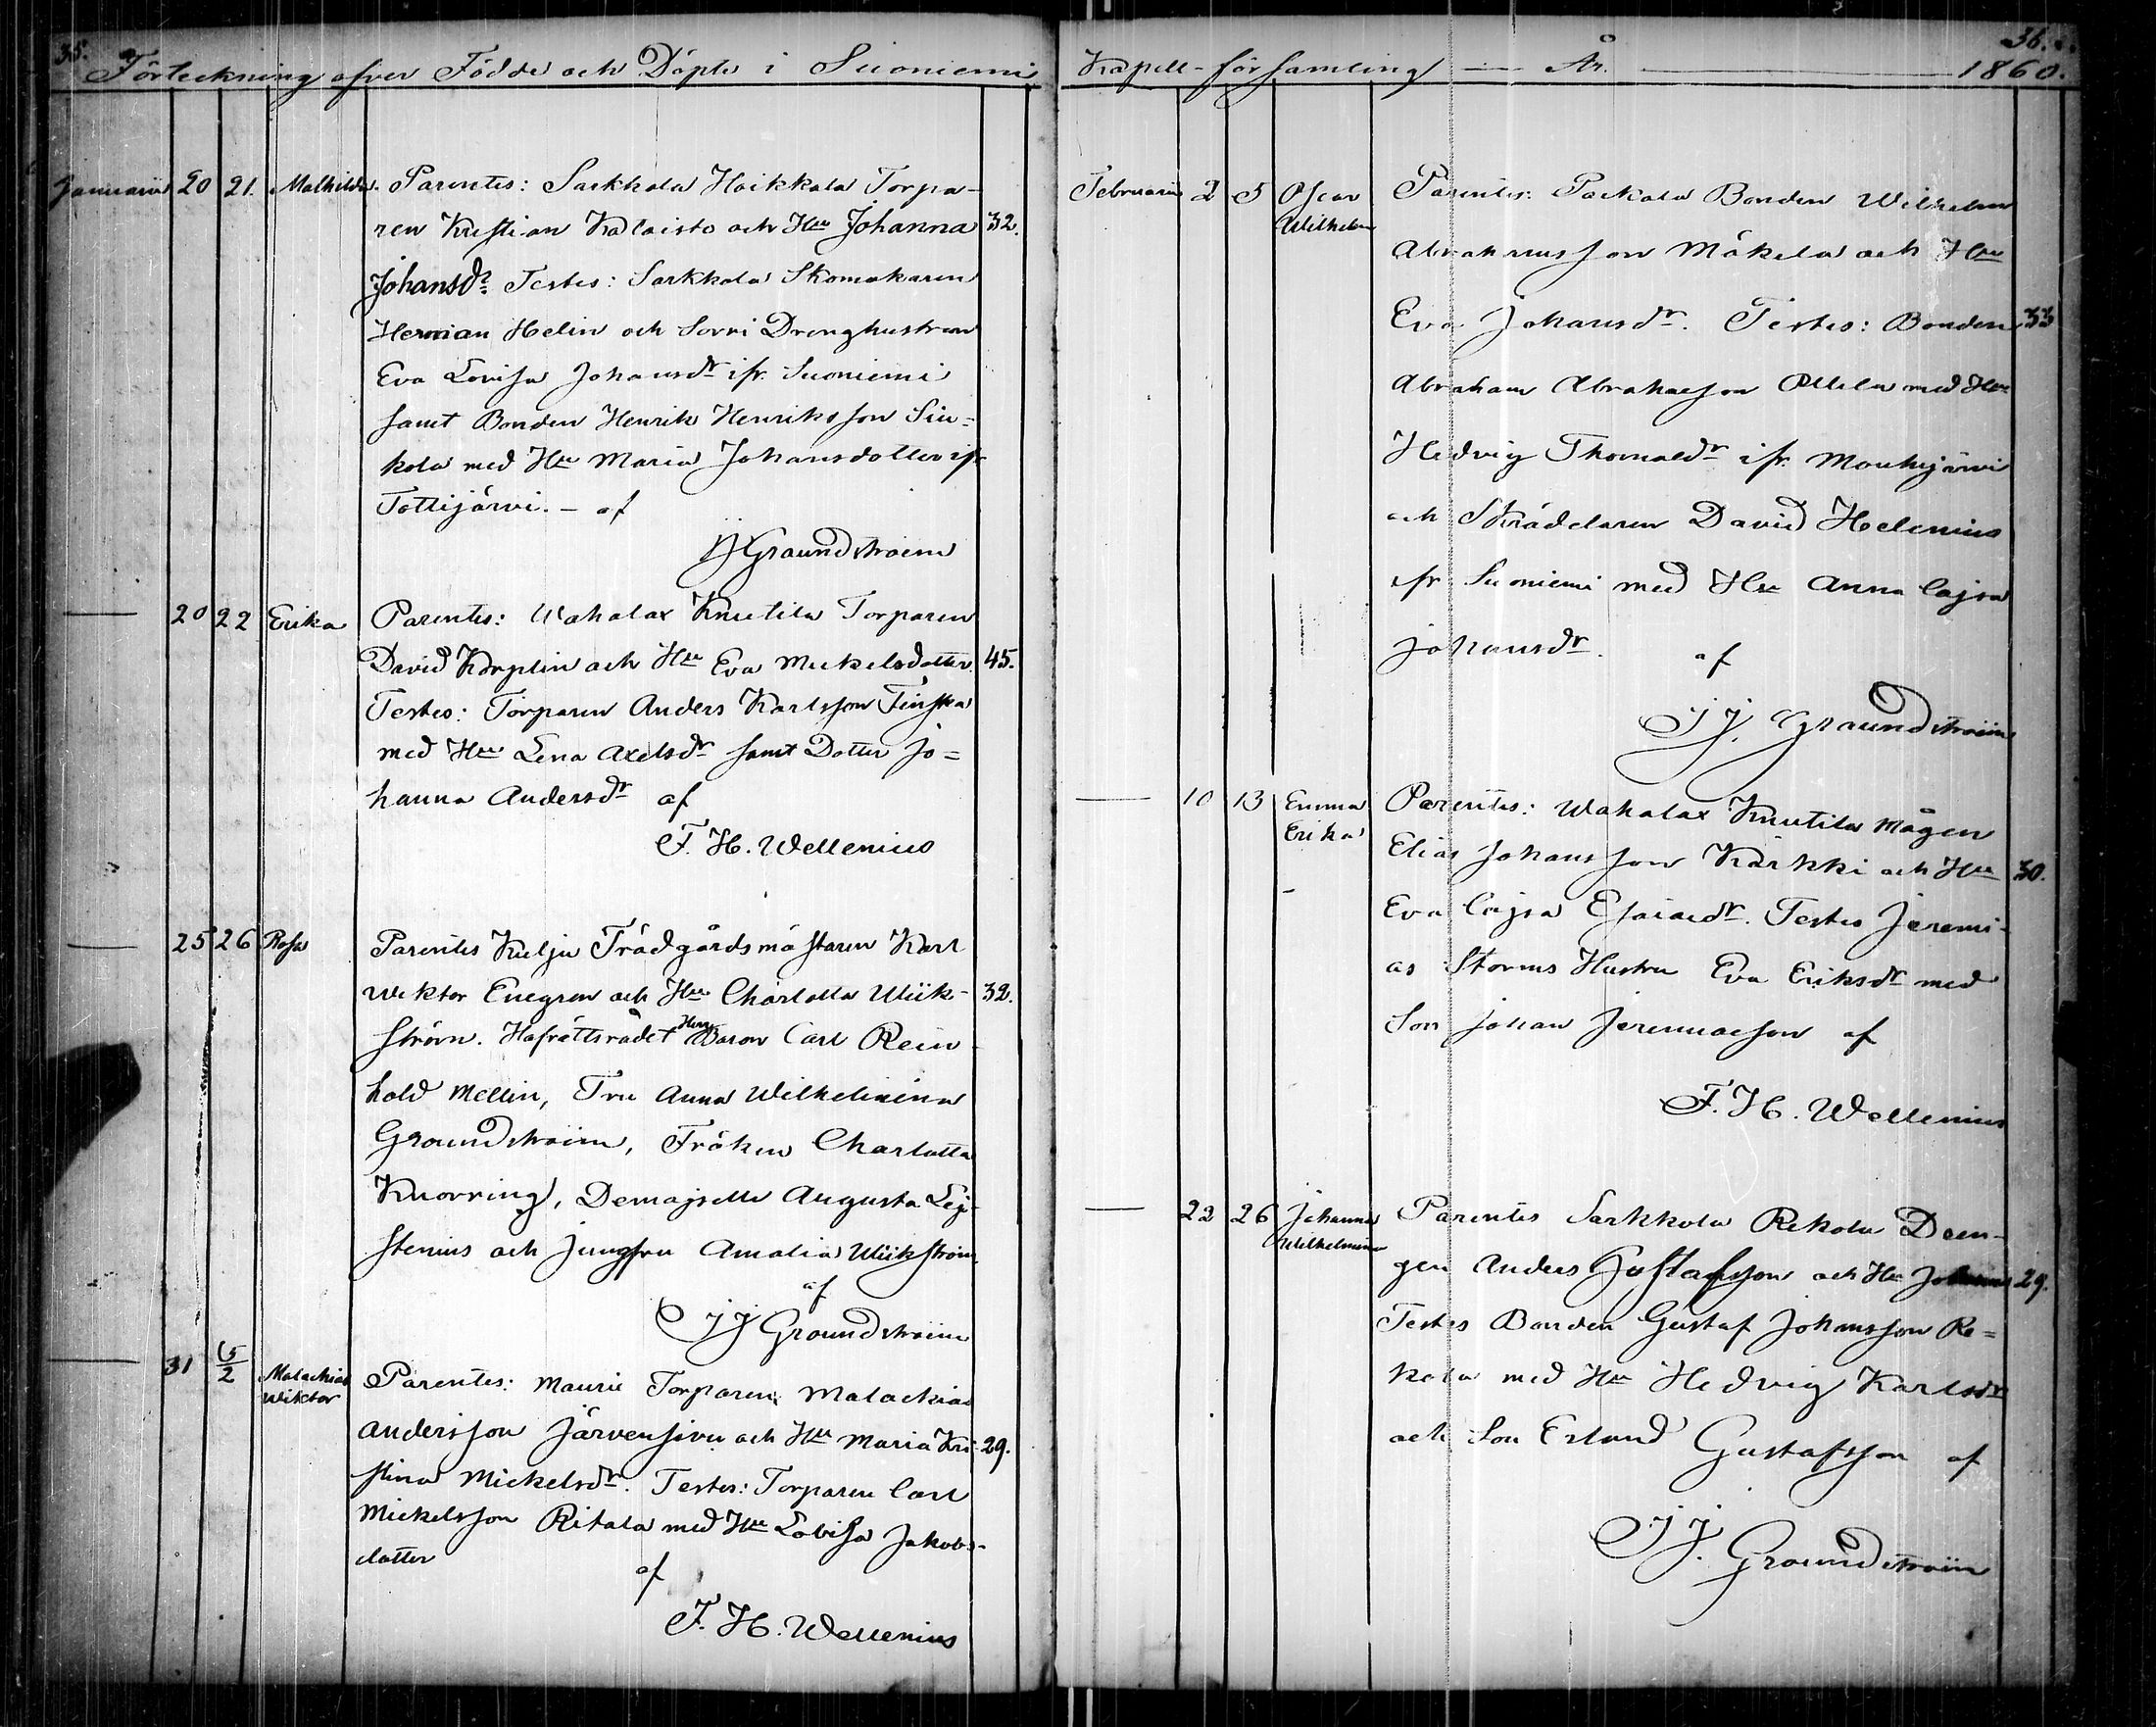 35.
Förteckning öfver Födde och Döpte i Suoniemi
Januarii 20 21. Mathilda. Parentes: Sarkkola Hoikkala Torpa-
ren Kristian Kalaisto och Hu Johanna 32.
Johansdr. Testes: Sarkkola Skomakaren
Herman Helin och Sorri Dränghustrun
Eva Lovisa Johansdr ifr. Suoniemi
samt Bonden Henrik Henriksson Siu=
kola med Hu Maria Johansdotter ifr
Tottijärvi. – af
JJ Groundstroem
20 22 Erika Parentes: Wahalax Knutila Torparen
David Körplin och Hu Eva Mickelsdotter. 45.
Testes: Torparen Anders Karlsson Finska
med Hu Lena Axelsdr samt Dotter Jo=
hanna Andersdr af
F. H. Wellenius
25 26 Rosa Parentes Kulju Trädgårdsmästaren Karl
Wiktor Enegren och Hu Charlotta Wiik- 32.
ström. Hofrättsrådet Herr Baron Carl Rein-
hold Mellin, Fru Anna Wilhelmina
Groundstroem, Fröken Charlotta
Knorring, Demoiselle Augusta Leji-
stenius och Jungfru Amalia Wiikström.
af
JJ Groundstroem
31 5/2 Malachias Wiktor Parentes: Mauri Torparen Malachias
Andersson Järvensivu och Hu Maria Kri- 29.
stina Mickelsdr. Testes: Torparen Carl
Mickelsson Ritala med Hu Lovisa Jakobs-
dotter
af
F. H. Wellenius
36.
Kapell-församling — År. — 1860.
Februarii 2 5 Oscar Wilhelm Parentes: Packala Bonden Wilhelm
Abrahamsson Mäkelä och Hu
Eva Johansdr. Testes: Bonden 33
Abraham Abrahasson Ollila med Hu
Hedvig Thomasdr ifr. Mouhijärvi
och Skräddaren David Helenius
ifr Suoniemi med Hu Anna Cajsa
Johansdr. af
JJ. Groundstroem
10 13 Emma Erika Parentes: Wahalax Knutila Mågen
Elias Johansson Kärkki och Hu 30.
Eva Cajsa Esaiædr. Testes Jeremi-
as Storms Hustru Eva Eriksdr med
Son Johan Jeremiasson af
F. H. Wellenius
22 26 Johanna Wilhelmina Parentes Sarkkola Rekola Dren-
gen Anders Gustafsson och Hu Johanna 29.
Testes Bonden Gustaf Johansson Re=
kola med Hu Hedvig Karlsdr
och Son Erland Gustafsson af
JJ. Groundstroem